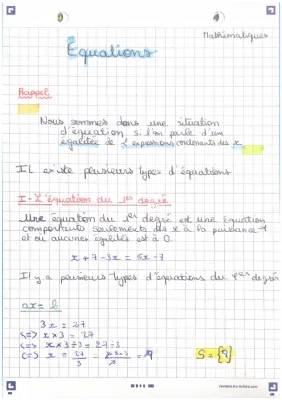 Mathématiques
Équations
Rappel
Nous sommes dans une situation
d'équation si l'on parle d'une
égalité de 2 expressions contenants des x
Il existe plusieurs types d'équations
I - L'équation du 1er degré
Une équation du 1er degré est une équation
comportants seulements des x à la puissance 1
et où aucunes égalités est à 0.
x + 7 - 3x = 5x - 7
Il y a plusieurs types d'équations du 1er degré
ax = b
3x = 27
<=> x × 3 = 27
<=> x × 3 ÷ 3 = 27 ÷ 3
<=> x = 27/3 = = 9
S = {9}